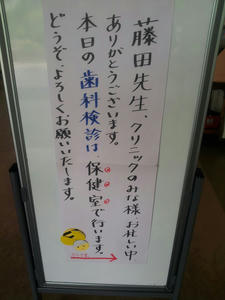 藤田先生、クリニックのみな様 お忙しい中
ありがとうございます。
本日の歯科検診は 保健室で行います。
どうぞ、よろしくお願いいたします。